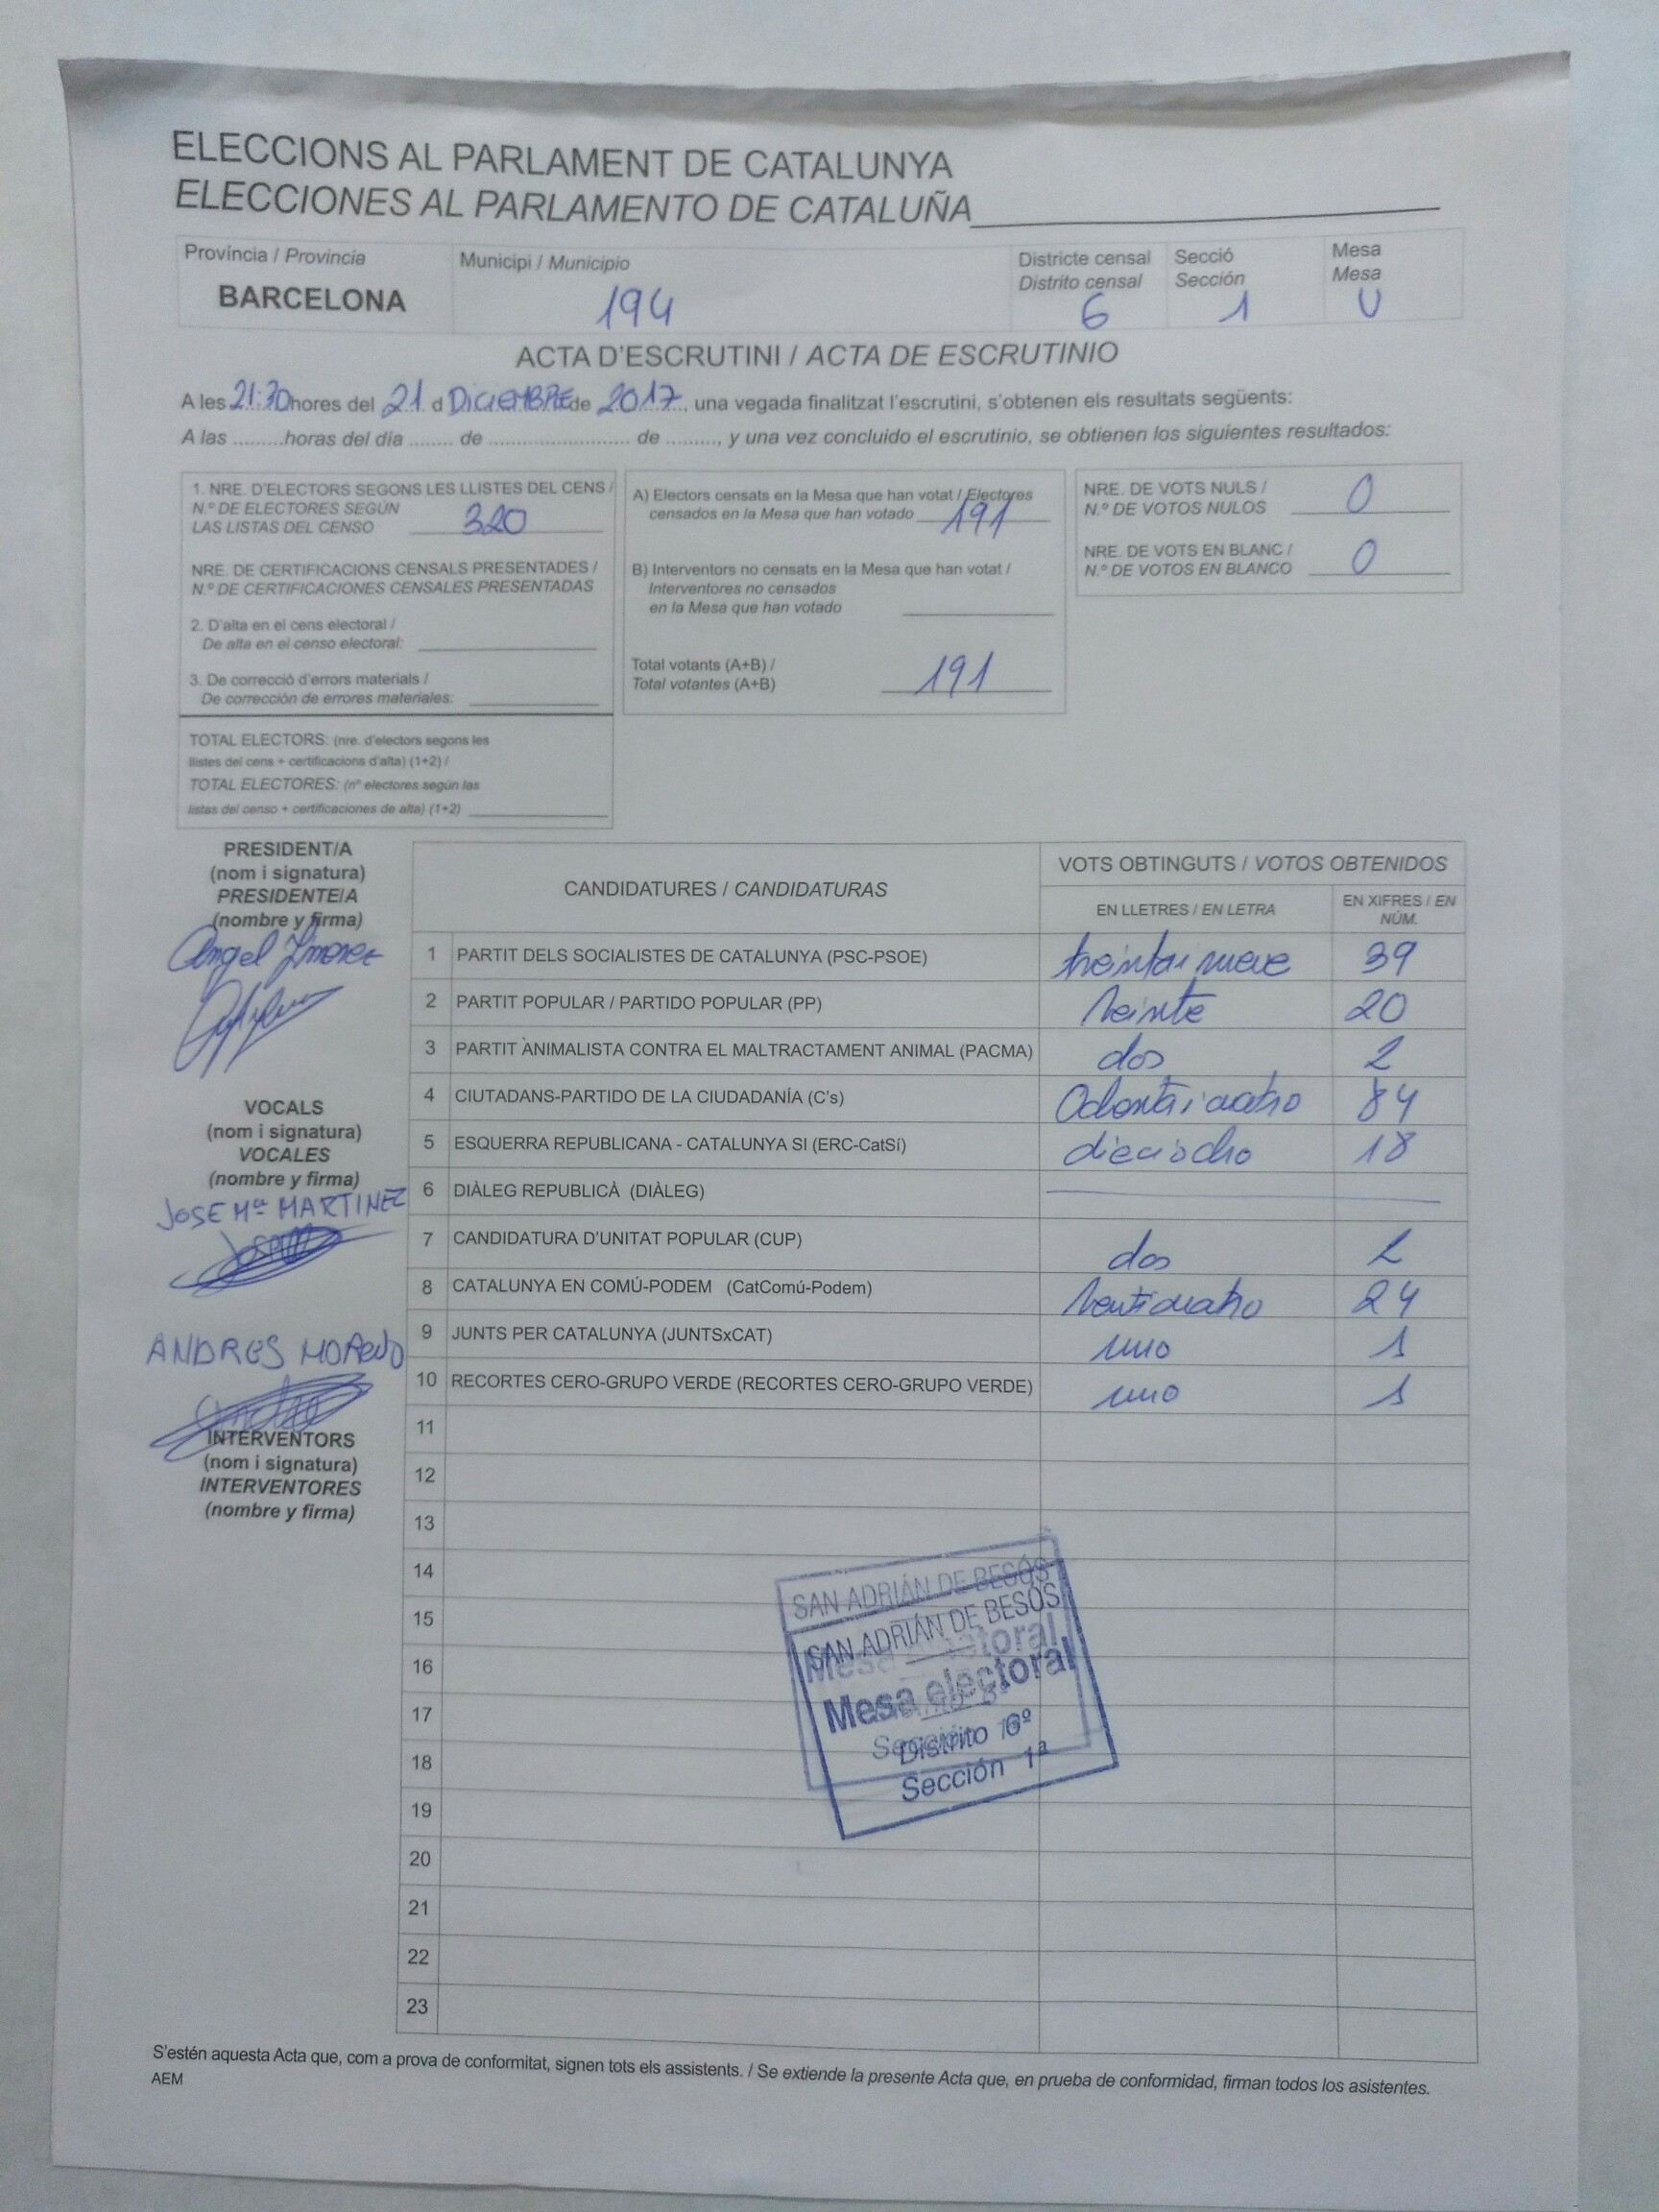 ELECCIONS AL PARLAMENT DE CATALUNYA
ELECCIONES AL PARLAMENTO DE CATALUÑA
Província / Provincia
BARCELONA
Municipi / Municipio
194
Districte censal
Distrito censal
6
Secció
Sección
1
Mesa
Mesa
U
ACTA D'ESCRUTINI / ACTA DE ESCRUTINIO
A les 21:30 hores del 21 d DICIEMBRE de 2017, una vegada finalitzat l'escrutini, s'obtenen els resultats següents:
A las .........horas del día ........ de ............................. de ........., y una vez concluido el escrutinio, se obtienen los siguientes resultados:
1. NRE. D'ELECTORS SEGONS LES LLISTES DEL CENS /
N.º DE ELECTORES SEGÚN
LAS LISTAS DEL CENSO 320
NRE. DE CERTIFICACIONS CENSALS PRESENTADES /
N.º DE CERTIFICACIONES CENSALES PRESENTADAS
2. D'alta en el cens electoral /
De alta en el censo electoral:
3. De correcció d'errors materials /
De corrección de errores materiales:
TOTAL ELECTORS: (nre. d'electors segons les
llistes del cens + certificacions d'alta) (1+2) /
TOTAL ELECTORES: (nº electores según las
listas del censo + certificaciones de alta) (1+2)
A) Electors censats en la Mesa que han votat / Electores
censados en la Mesa que han votado 191
B) Interventors no censats en la Mesa que han votat /
Interventores no censados
en la Mesa que han votado
Total votants (A+B) /
Total votantes (A+B) 191
NRE. DE VOTS NULS /
N.º DE VOTOS NULOS 0
NRE. DE VOTS EN BLANC /
N.º DE VOTOS EN BLANCO 0
PRESIDENT/A
(nom i signatura)
PRESIDENTE/A
(nombre y firma)
Angel Jimenez
VOCALS
(nom i signatura)
VOCALES
(nombre y firma)
JOSE Mª MARTINEZ
ANDRES MORENO
INTERVENTORS
(nom i signatura)
INTERVENTORES
(nombre y firma)
CANDIDATURES / CANDIDATURAS
VOTS OBTINGUTS / VOTOS OBTENIDOS
EN LLETRES / EN LETRA
EN XIFRES / EN NÚM.
1 PARTIT DELS SOCIALISTES DE CATALUNYA (PSC-PSOE) treintai nueve 39
2 PARTIT POPULAR / PARTIDO POPULAR (PP) Veinte 20
3 PARTIT ANIMALISTA CONTRA EL MALTRACTAMENT ANIMAL (PACMA) dos 2
4 CIUTADANS-PARTIDO DE LA CIUDADANÍA (C's) 84
5 ESQUERRA REPUBLICANA - CATALUNYA SI (ERC-CatSí) dieciocho 18
6 DIÀLEG REPUBLICÀ (DIÀLEG)
7 CANDIDATURA D'UNITAT POPULAR (CUP) dos 2
8 CATALUNYA EN COMÚ-PODEM (CatComú-Podem) 24
9 JUNTS PER CATALUNYA (JUNTSxCAT) uno 1
10 RECORTES CERO-GRUPO VERDE (RECORTES CERO-GRUPO VERDE) uno 1
11
12
13
14
15
16
17
18
19
20
21
22
23
SAN ADRIÁN DE BESÓS
SAN ADRIÁN DE BESÓS
Mesa electoral
Distrito 6º
Sección 1ª
S'estén aquesta Acta que, com a prova de conformitat, signen tots els assistents. / Se extiende la presente Acta que, en prueba de conformidad, firman todos los asistentes.
AEM